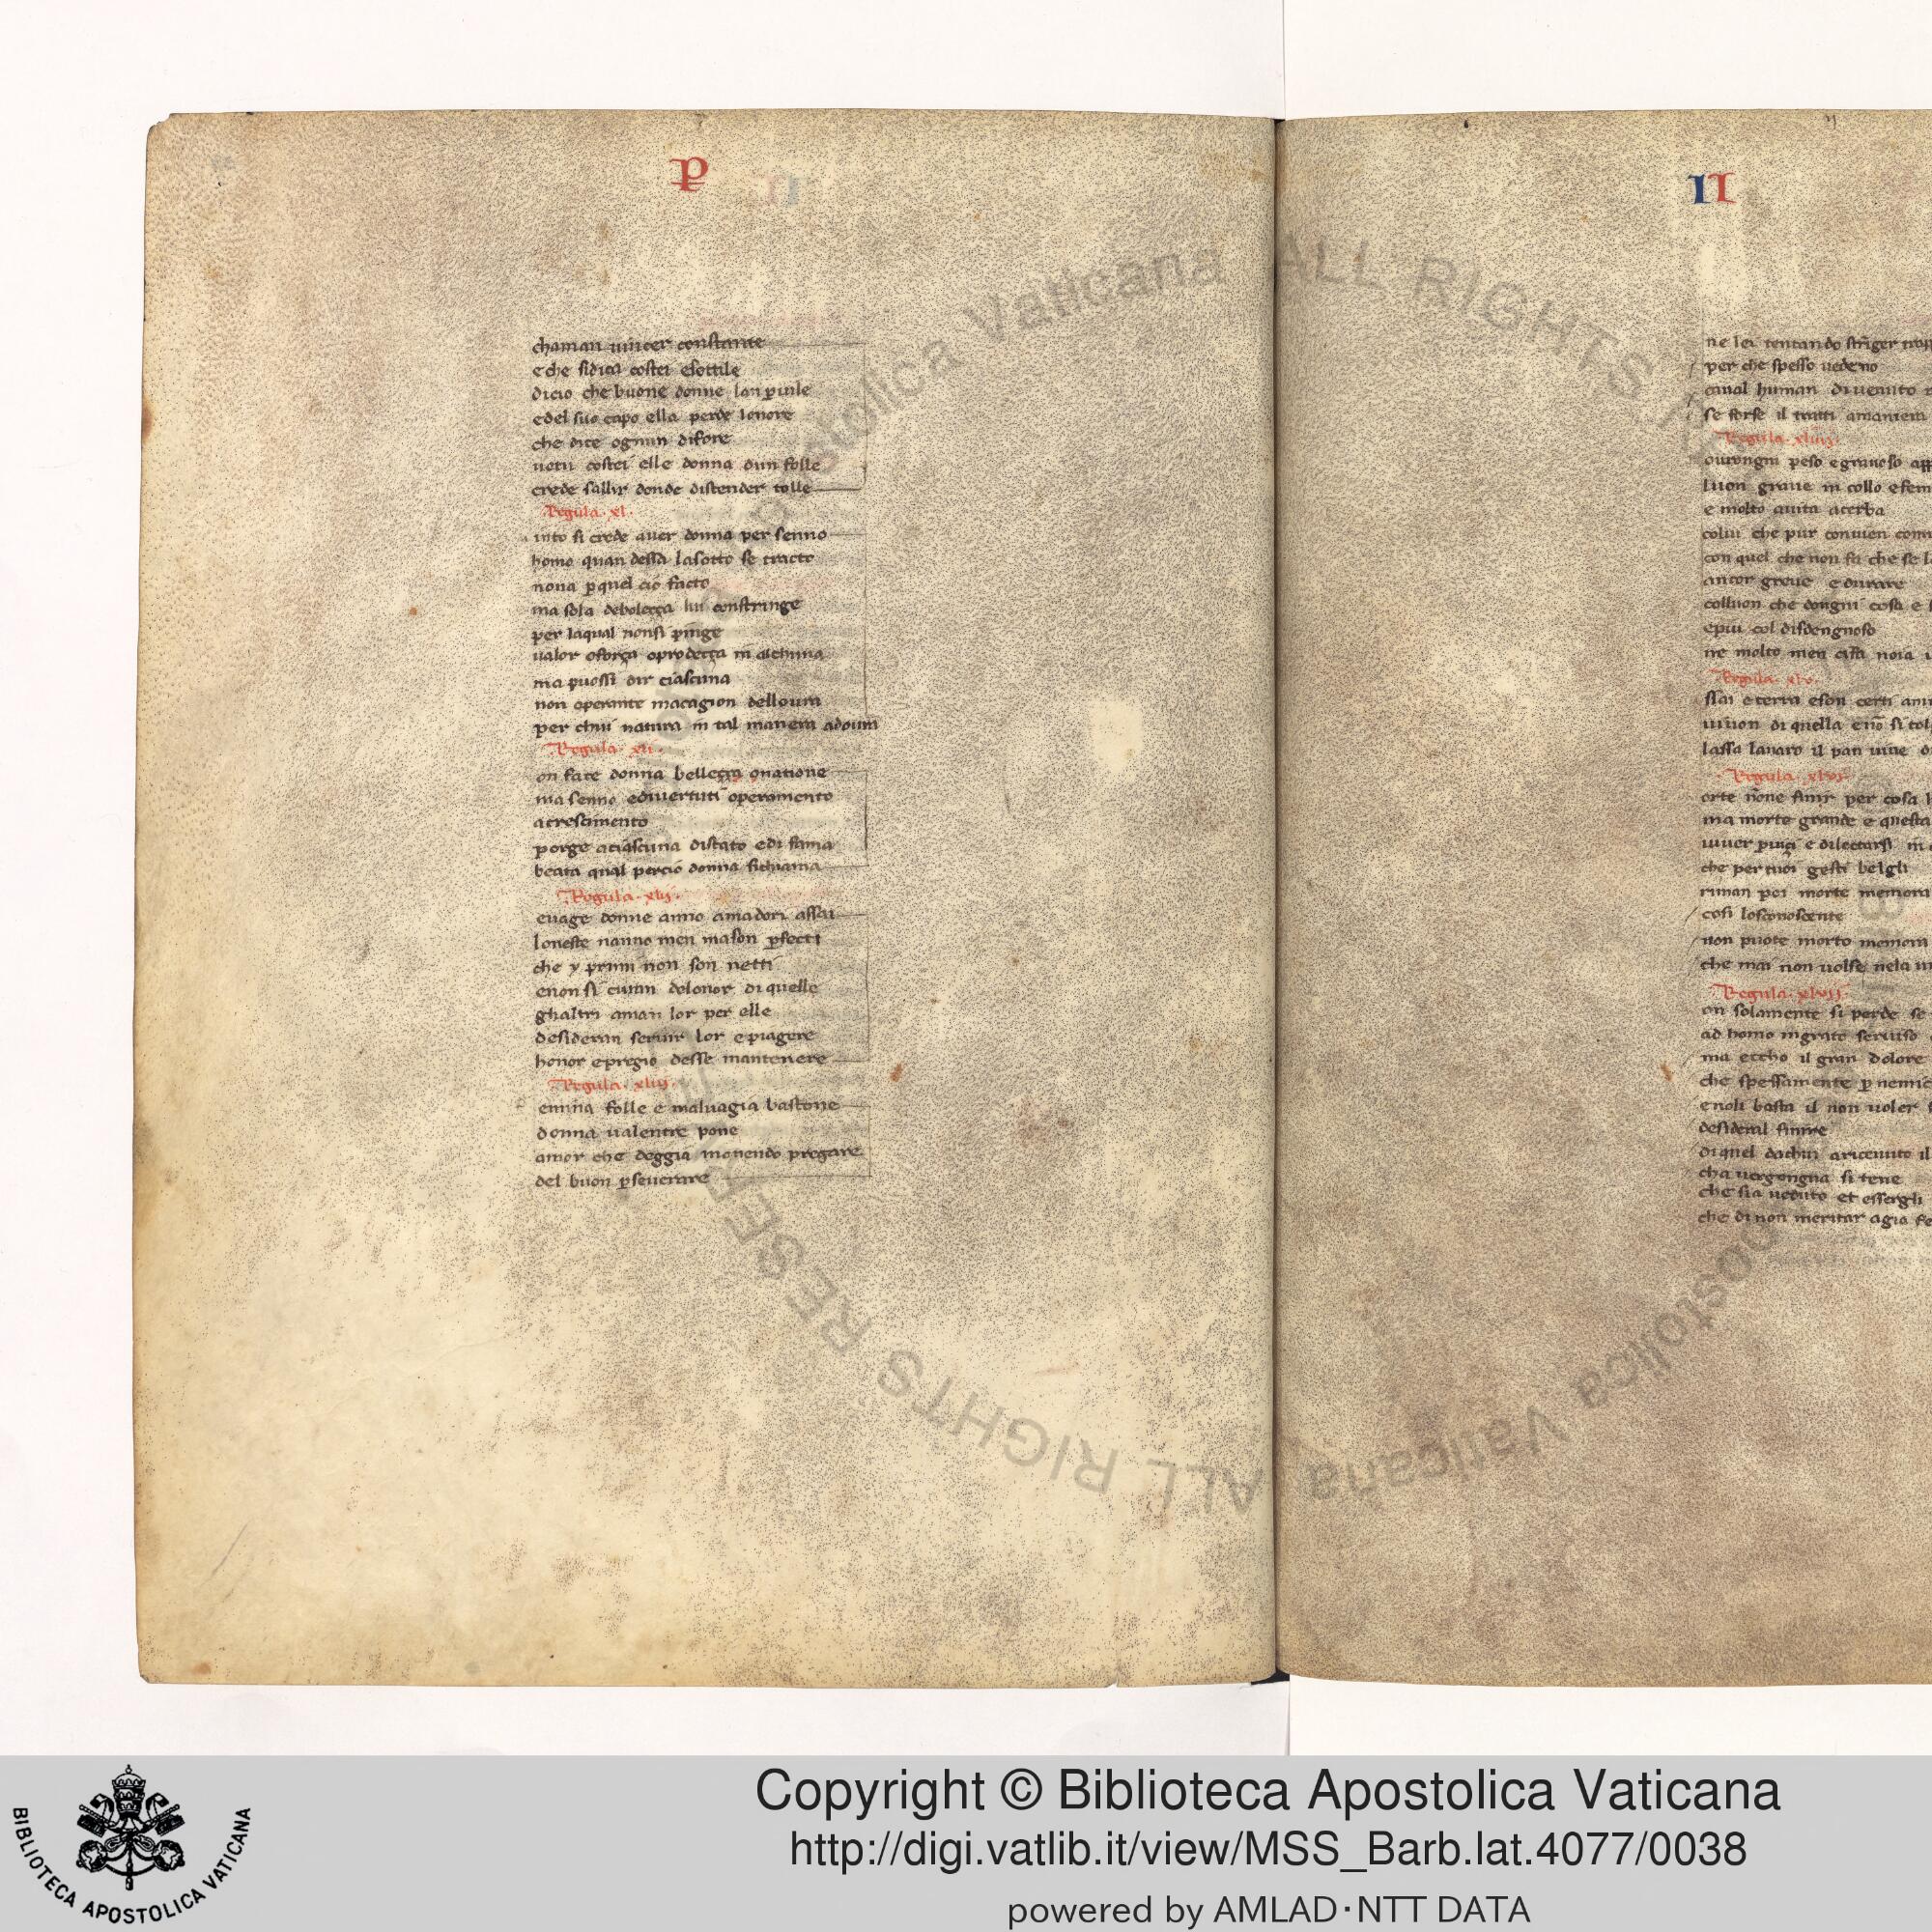 ꝑ
chaman uiuer constante
e che si dica costei e sottile
di cio che buone donne lan ꝑ uile
e del suo capo ella perde lonore
che dice ognun di fore
uetu costei elle donna dun folle
crede sallir donde distender tolle
Regula · xl ·
into si crede auer donna per senno
homo quan dessa lasotto se tracto
nona ꝑquel cio facto
ma sola debolecça lui constringe
per laqual nonsi pinge
ualor oforça oprodecça in alchuna
ma puossi dir ciascuna
non operante
per chui natura in tal manera adoura
Regula · xli ·
on face donna bellecça onatione
ma senno eduertuti operamento
acrescimento
porge aciascuna distato edi fama
beata qual percio donna sichiama
Regula · xlij ·
euage donne anno amadori assai
loneste nanno men mason ꝑfecti
che y primi non son netti
enonsi curan delonor di quelle
ghaltri aman lor per elle
desideran seruir lor epiagere
honor epregio desse mantenere
Regula · xliij ·
emina folle e maluagia bastone
donna ualentre pone
amor che deggia monendo pregare
del buon ꝑseuerare
II
ne lei tentando
per che spesso uedeno
caual human diuenuto
se forse il tratti amaniera
Regula · xliiij ·
ourongni peso egrauoso
luon graue in collo efem
e molto auita acerba
colui che pur conuien
con quel che non fa che se
ancor greue e durare
colluon che dongni cosa e
epiu col disdengnoso
ne molto men
Regula · xlv ·
ssai e terra eson certi
uiuon di quella e nō si
lassa lauaro il pan uiue
Regula · xlvj ·
orte none finir per cosa
ma morte grande e questa
uiuer e dilectarsi
che per tuoi gesti belgli
riman poi morte memora
cosi losconoscente
non puote morto memora
che mai non uolse nela
Regula · xlvij ·
on solamente si perde se
ad homo ingrato seruiso
ma eccho il gran dolore
che spessamente ꝑ nemic
enoli basta il non uoler
desideral finire
di quel dachui a riceuuto il
cha uergongna si tene
che sia ueduto et essergli
che di non meritar agia
Copyright © Biblioteca Apostolica Vaticana
http://digi.vatlib.it/view/MSS_Barb.lat.4077/0038
powered by AMLAD·NTT DATA
BIBLIOTECA APOSTOLICA VATICANA